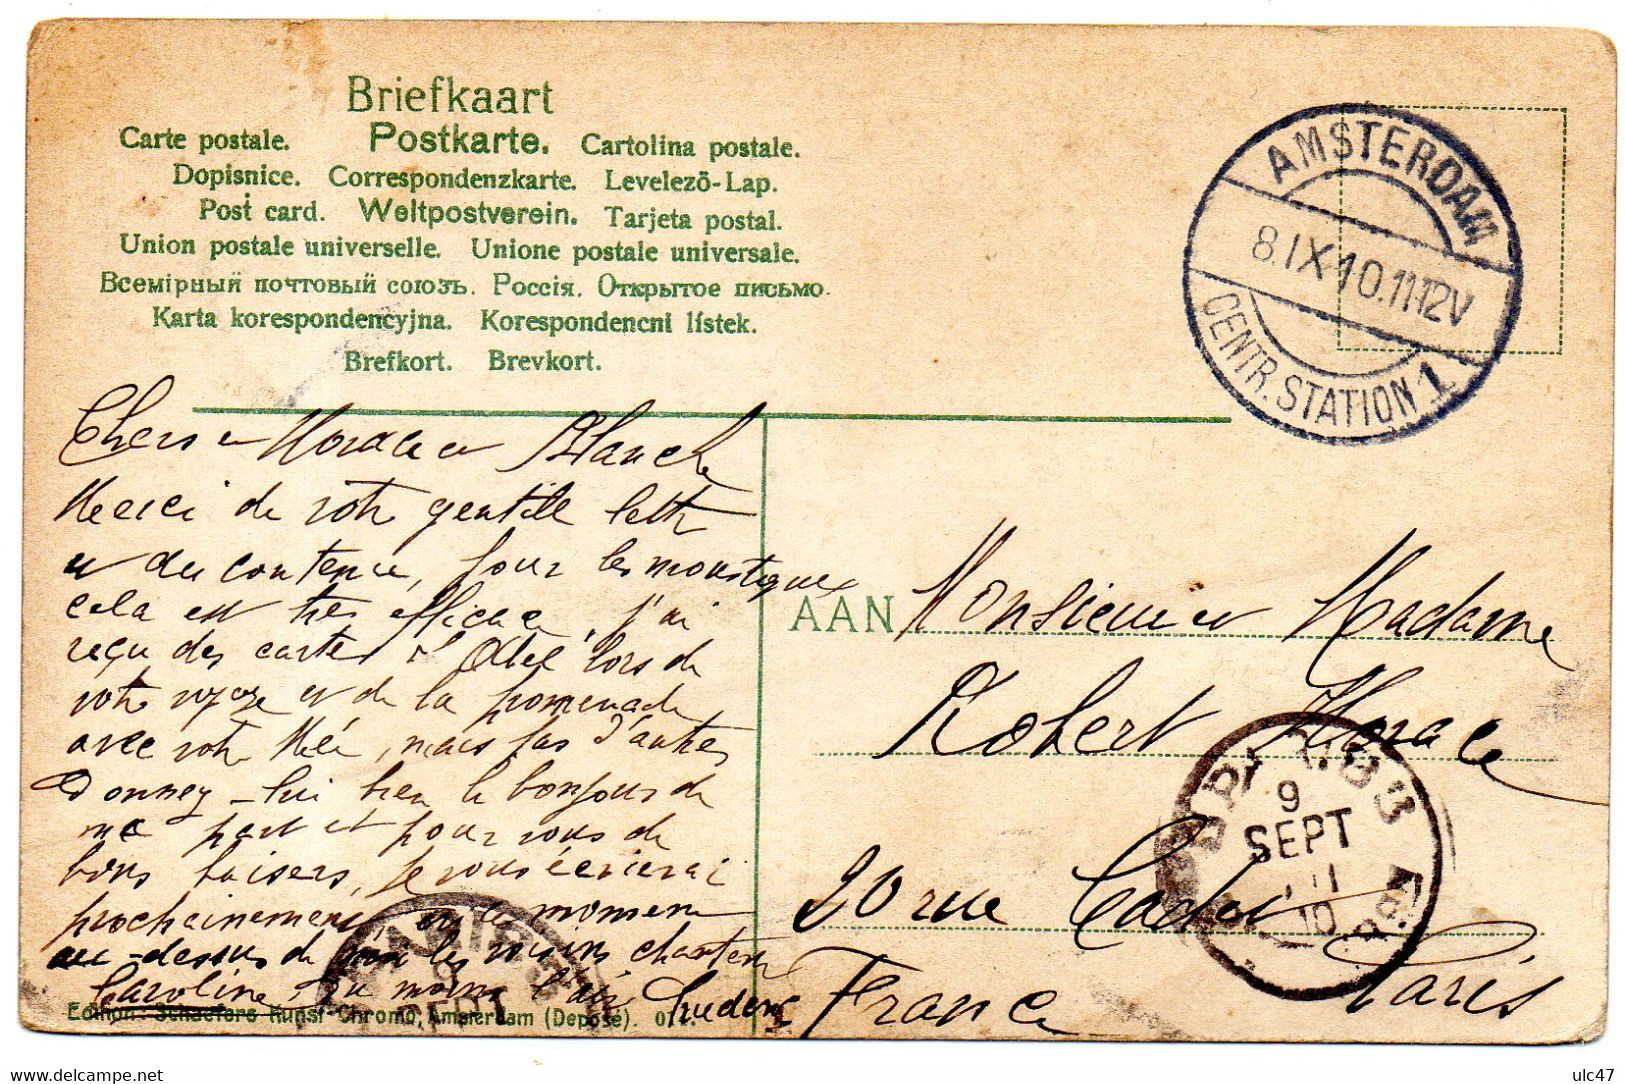 Briefkaart
Carte postale. Postkarte. Cartolina postale.
Dopisnice. Correspondenzkarte. Levelező-Lap.
Post card. Weltpostverein. Tarjeta postal.
Union postale universelle. Unione postale universale.
Всемірный почтовый союзъ. Россія. Открытое письмо.
Karta korespondencyjna. Korespondencni lístek.
Brefkort. Brevkort.
AMSTERDAM
8.IX.10.11-12V
CENTR. STATION 1
Chers Horace et Blanche
Merci de votre gentille lettre
et du contenu, pour les moustiques
cela est très efficace, j'ai
reçu des cartes d'Odel lors de
votre voyage et de la promenade
avec votre Mère, mais pas d'autres
Donnez-lui bien le bonjour de
ma part et pour vous de
bons baisers, je vous écrierai
prochainement, en ce moment
au-dessus de les voisins chantent
Caroline, du moins l'air
AAN Monsieur et Madame
Robert Horace
20 rue Cadet
Paris
France
9
SEPT
10
PARIS
9
SEPT
Edition: Schaefers Kunst-Chromo, Amsterdam (Deposé).
delcampe.net
ulc47